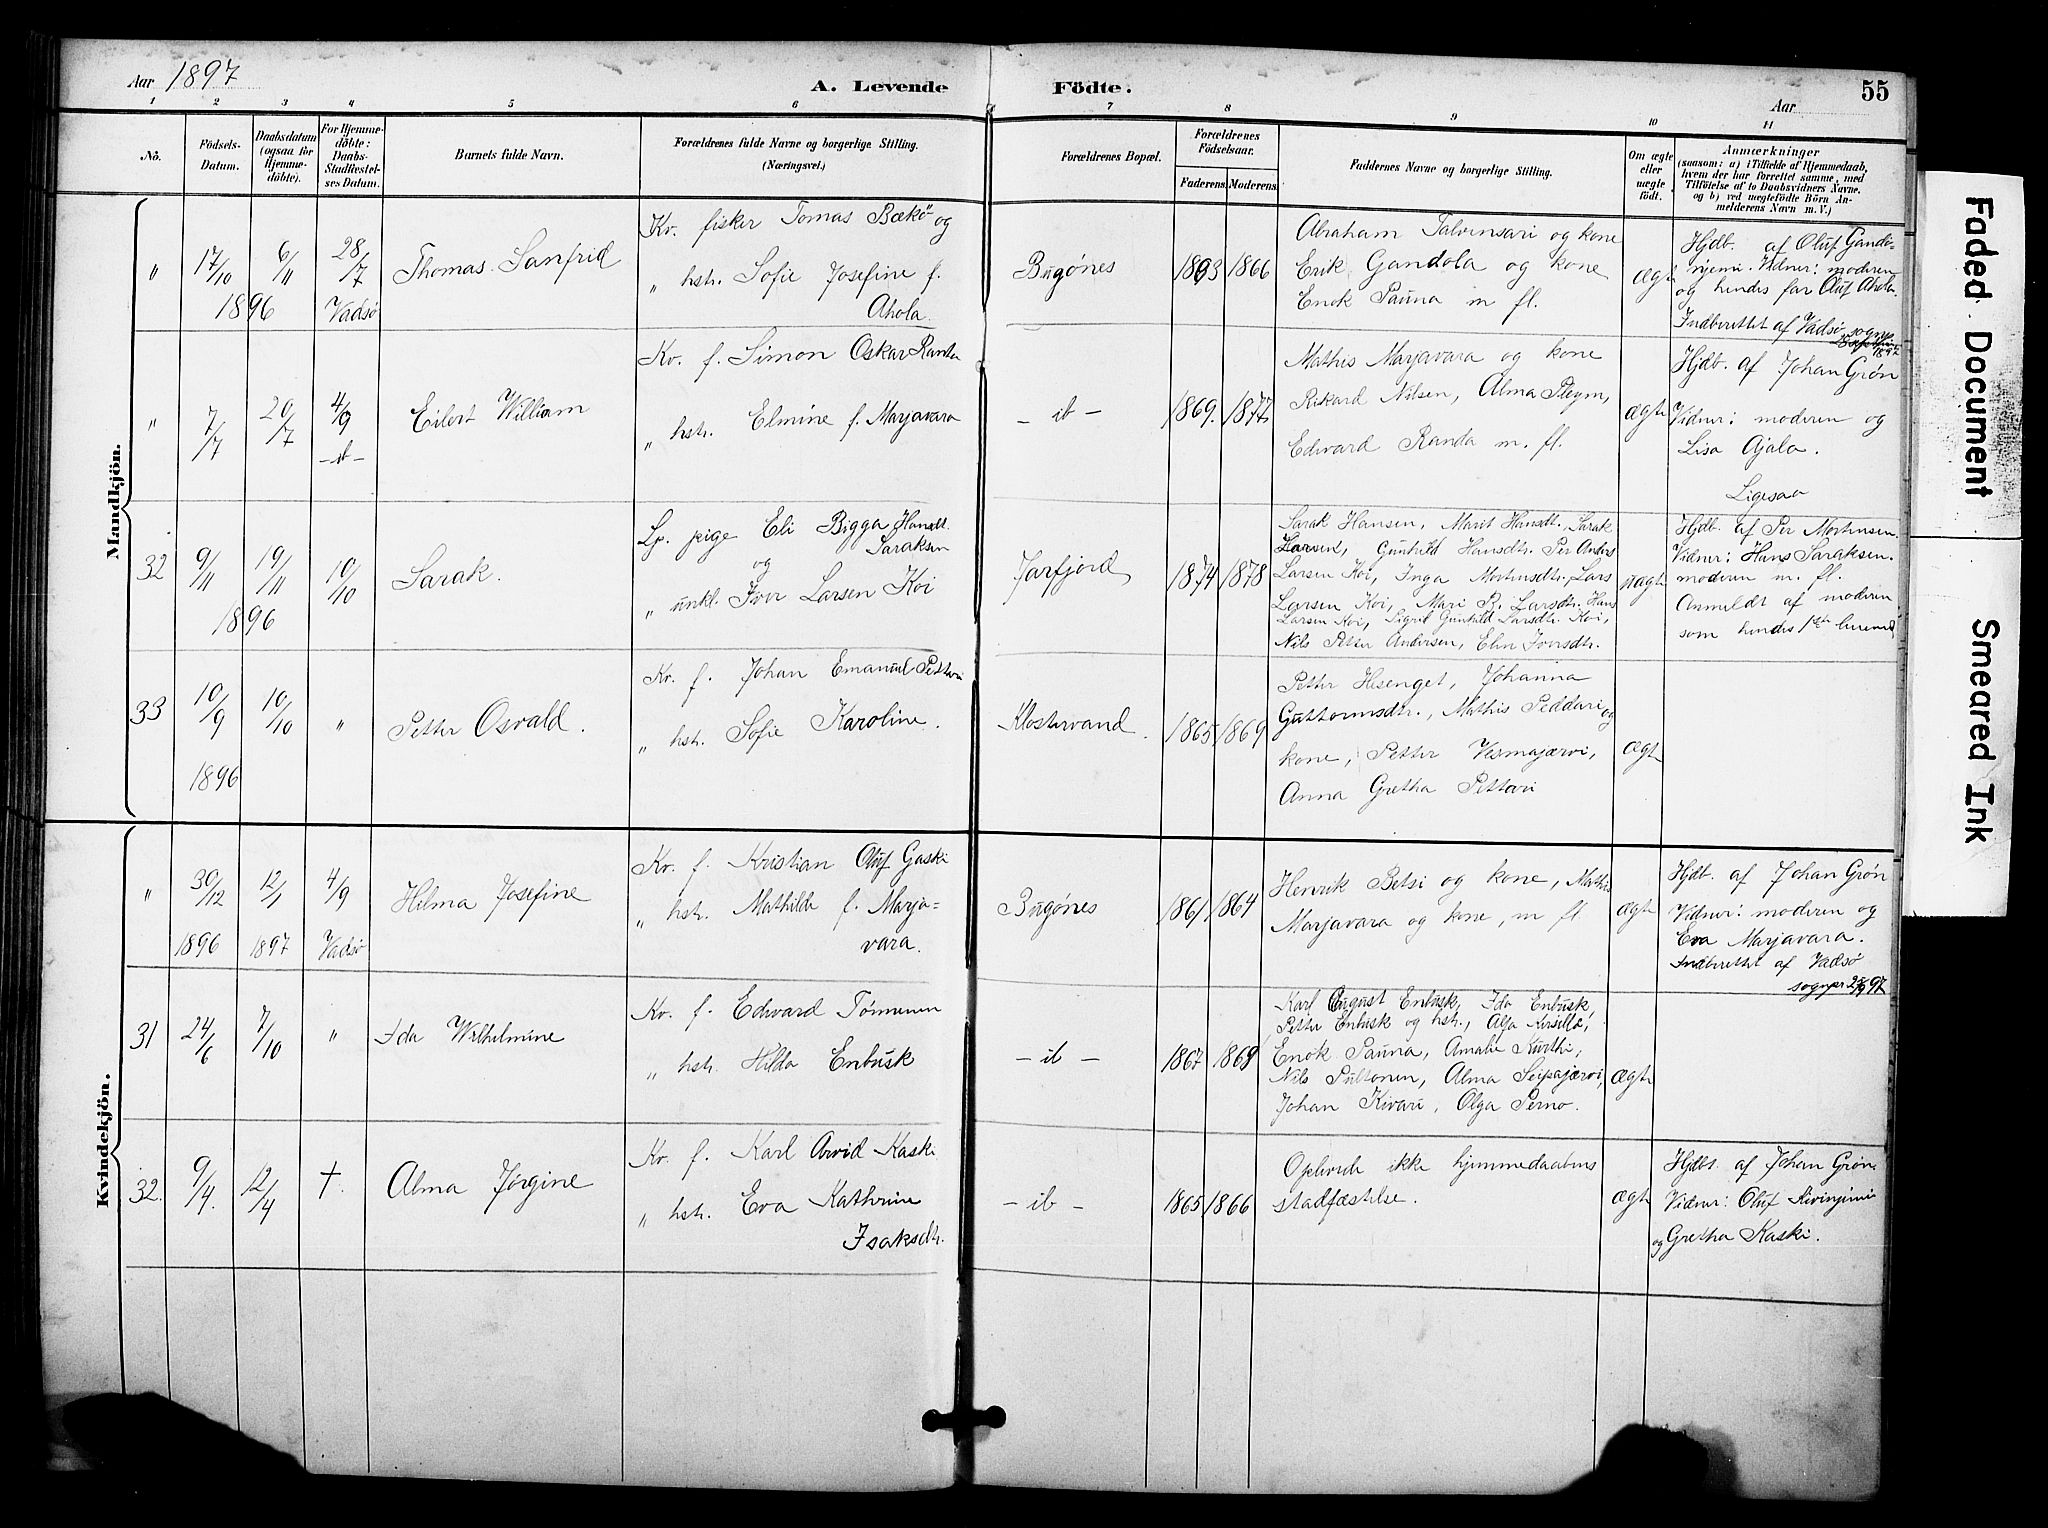 Aar 1897
A. Levende Födte.
Aar
55
1 2 3 4 5 6 7 8 9 10 11
No.
Födsels-Datum.
Daabsdatum (ogsaa for Hjemme-döbte).
For Hjemme-döbte: Daabs-Stadfæstel-ses Datum.
Barnets fulde Navn.
Forældrenes fulde Navne og borgerlige Stilling. (Næringsvei.)
Forældrenes Bopæl.
Forældrenes Födselsaar.
Faderens. Moderens.
Faddernes Navne og borgerlige Stilling.
Om ægte eller uægte födt.
Anmærkninger
(saasom: a) i Tilfælde af Hjemmedaab, hvem der har forrettet samme, med Tilföielse af to Daabsvidners Navne, og b) ved uægtefödte Börn Anmelderens Navn m. V.)
Mandkjön.
" 17/10 1896 6/11 28/7 Vadsø
Thomas Sanfrid
Kv. fisker Tomas Bækö og
" hstr. Sofie Josefine f.
Ahola.
Bugønes
1863 1866
Abraham Talvensari og kone
Erik Gandola og kone
Enok Pauna m fl.
ægte
Hjdb. af Oluf
Vidner: moderen
og hendes far Oluf Ahola.
Indberettet af Vadsø sogne
" 7/7 20/7 4/9 -ib-
Eilert William
Kv. f. Simon Oskar Ranta
" hstr. Elmine f. Marjavara
- ib -
1869. 1877.
Mathis Marjavara og kone
Rikard Nilsen, Alma Pleym,
Edward Randa m. fl.
ægte
Hjdb. af Johan Grøn
Vidner: moderen og
Lisa Ajala.
Ligesaa
32 9/11 1896 19/11 10/10
Sarak.
Lp. pige Eli Bigga Hansdt.
Saraksen
og
" unkl. Iver Larsen Koi
Jarfjord
1874 1878
Sarak Hansen, Marit Hansdtr., Sarak
Larsen, Gunhild Hansdtr. Per Anders
Larsen Koi, Inga Mortensdtr. Lars
Larsen Koi, Mari B. Larsdtr. Hans
Larsen Koi, Sigrid Gunhild Larsdtr. Koi,
Nils Petter Andersen, Elen Iversdtr.
uægte
Hjdb. af Per Mortensen.
Vidner: Hans Saraksen.
moderen m. fl.
Anmeldt af moderen
som hendes 1ste
33 10/9 1896 10/10 "
Petter Osvald.
Kv. f. Johan Emanuel Petteri
" hstr. Sofie Karoline.
Klostervand.
1865 1869
Petter Hesenget, Johanna
Guttormsdtr., Mathis Peddari og
kone, Petter Vesmajærvi,
Anna Gretha Petteri
ægte
Kvindekjön.
" 30/12 1896 12/1 1897 4/9 Vadsø
Hilma Josefine
Kv. f. Kristian Oluf Gaski
" hstr. Mathilde f. Marja=
vara.
Bugønes
1861. 1864
Henrik Betsi og kone, Mathis
Marjavara og kone, m fl
ægte
Hjdb. af Johan Grøn
Vidner: moderen og
Eva Marjavara.
Indberettet af Vadsø
sognepr 97
31 24/6 7/10 "
Ida Wilhelmine
Kv. f. Edvard Tørmenen
" hstr. Hilda Enbusk
- ib -
1867 1868
Karl August Enbusk, Ida Enbusk,
Petter Enbusk og hstr.,
Enok Pauna, Amalie Kurthi,
Nils Pultonen, Alma Seipajærvi,
Johan Kivari, Olga Perno.
ægte
32. 9/4. 12/4 †.
Alma Jørgine
Kv. f. Karl Arvid Kaski
" hstr. Eva Kathrine
Isaksdtr.
- ib -
1865 1866
Oplevede ikke hjemmedaabens
stadfæstelse.
ægte
Hjdbt. af Johan Grøn.
Vidner: Oluf
og Gretha Kaski.
Faded Document
Smeared Ink